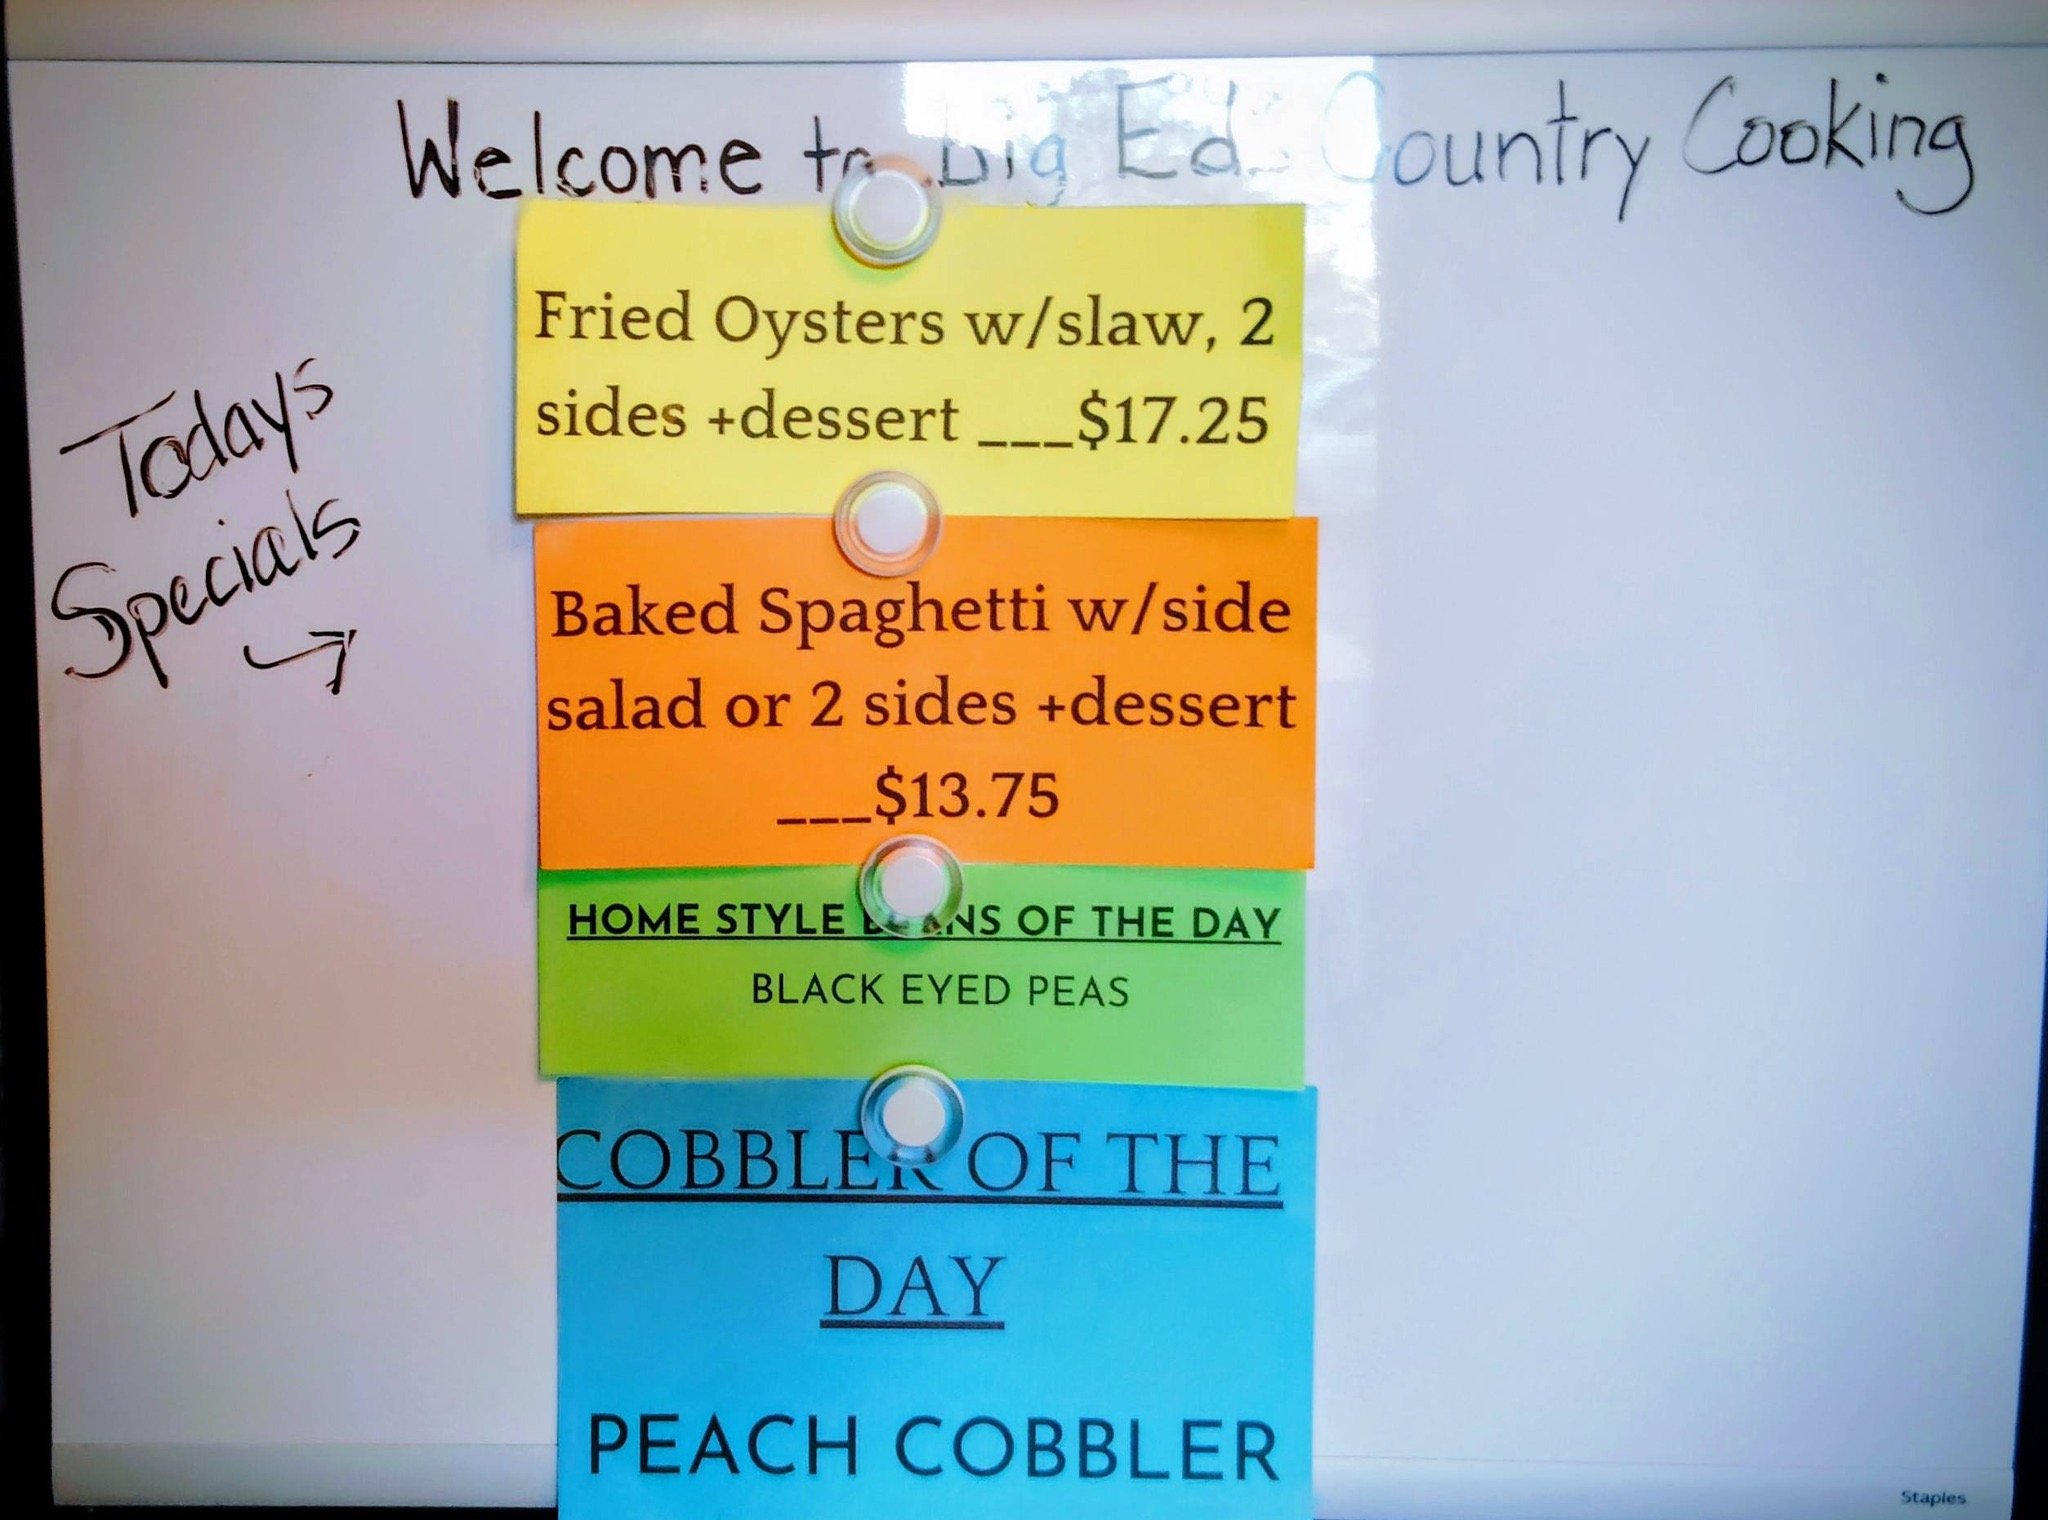 Welcome to Big Ed's Country Cooking
Todays
Specials
Fried Oysters w/slaw, 2
sides +dessert ___$17.25
Baked Spaghetti w/side
salad or 2 sides +dessert
___$13.75
HOME STYLE BEANS OF THE DAY
BLACK EYED PEAS
COBBLER OF THE
DAY
PEACH COBBLER
Staples